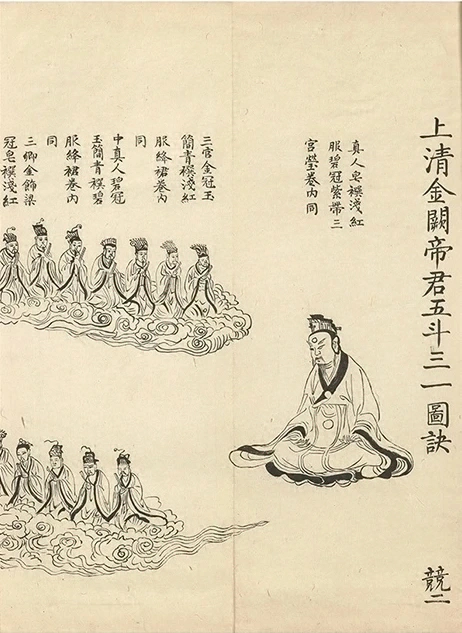 上清金闕帝君五斗三一圖訣
競二
真人皂襈淺紅
服碧冠紫帶三
宮瑩卷內同
三官金冠玉
簡青襈淺紅
服絳裙卷內
同
中真人碧冠
玉簡青襈碧
服絳裙卷內
同
三卿金飾梁
冠皂襈淺紅